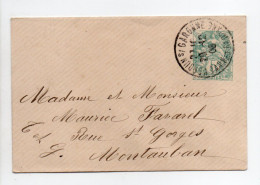 Madame et Monsieur
Maurice Favarel
Rue St Gorges
Montauban